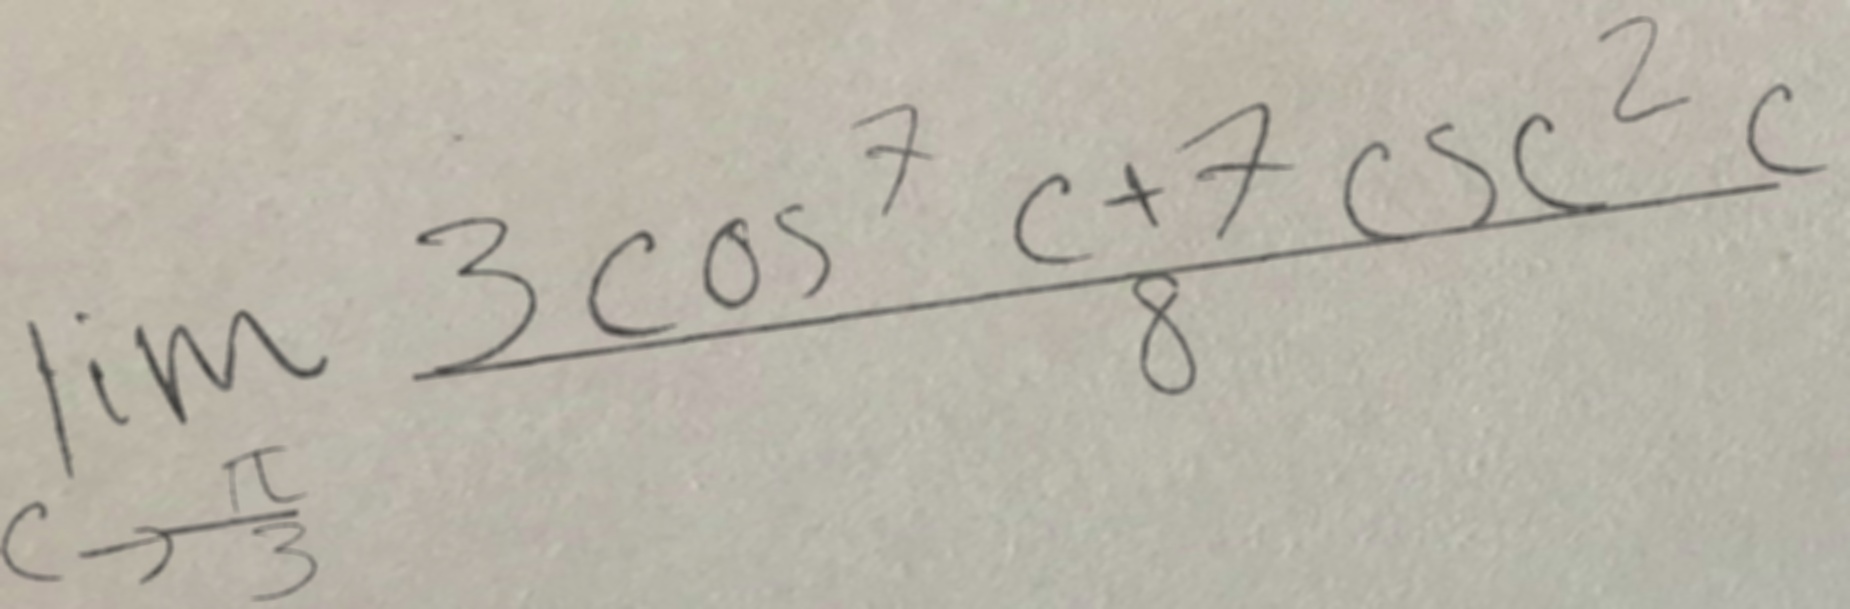 lim_{c→\frac{π}{3}} \frac{3cos^7 c+7csc^2 c}{8}